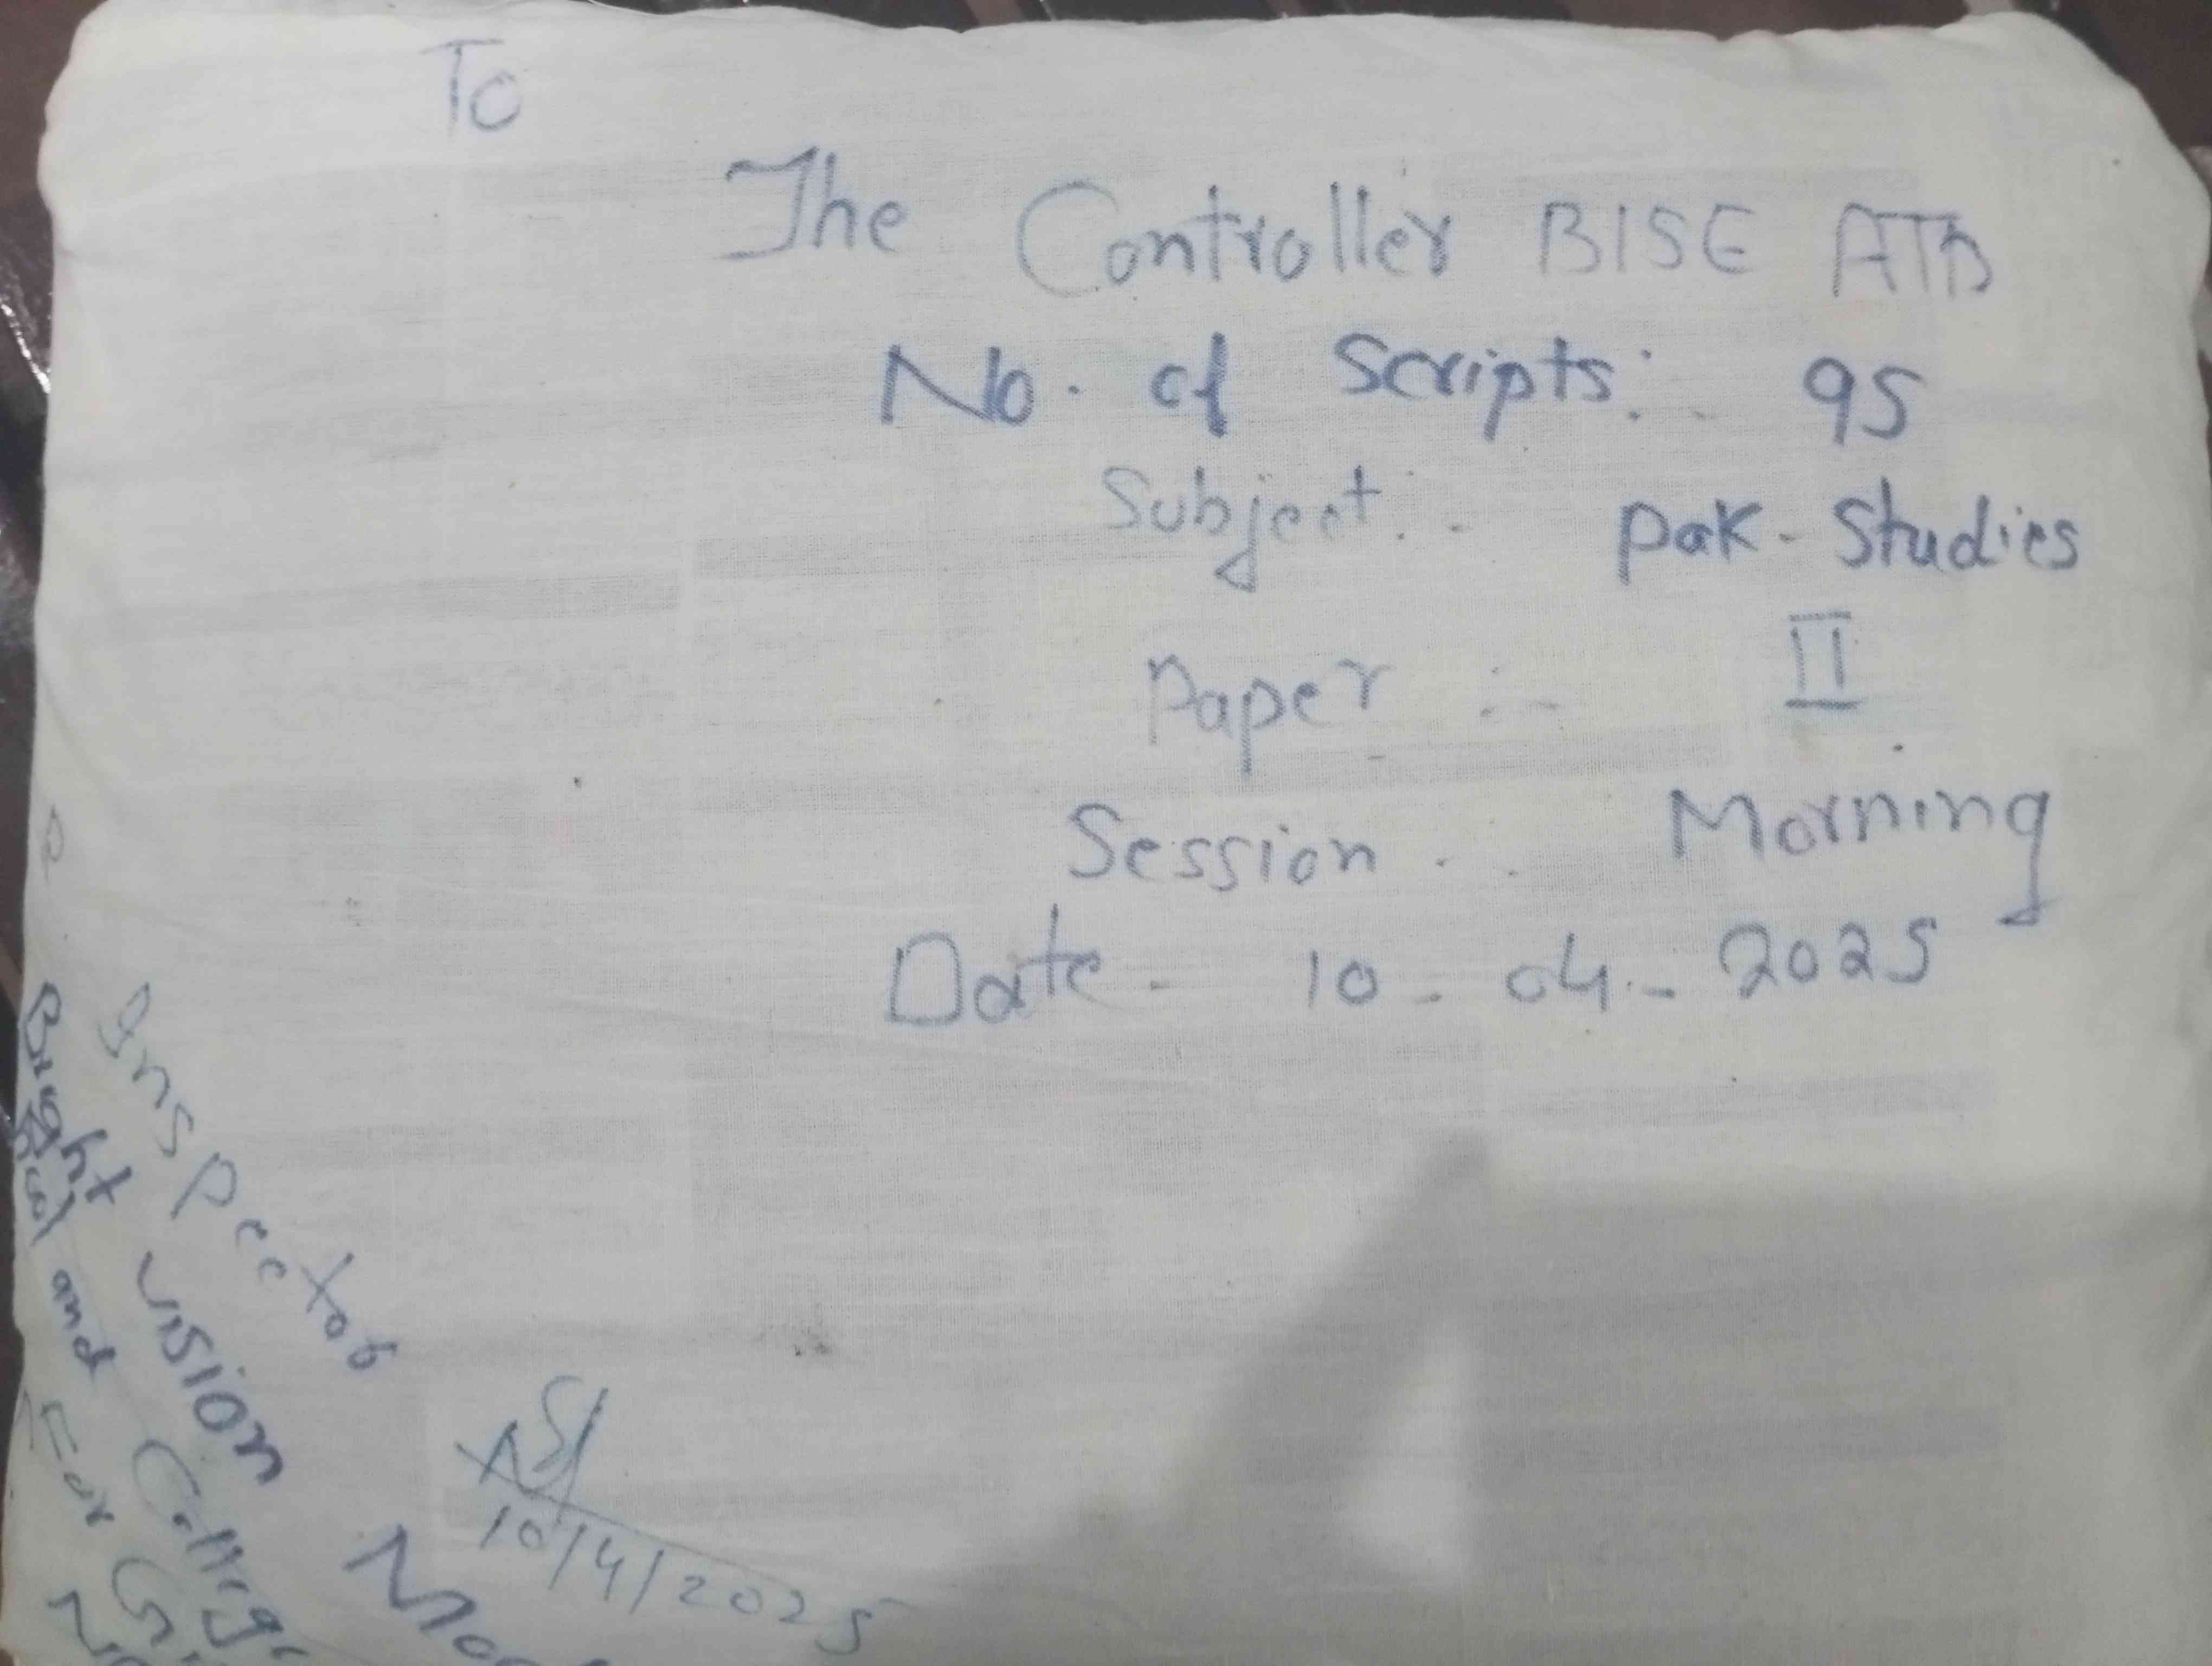 To
The Controller BISE ATD
No. of Scripts:- 95
Subject:- Pak-Studies
Paper :- II
Session :- Morning
Date - 10-04-2025
Inspector
Bright Vision
and College
For
10/4/2025